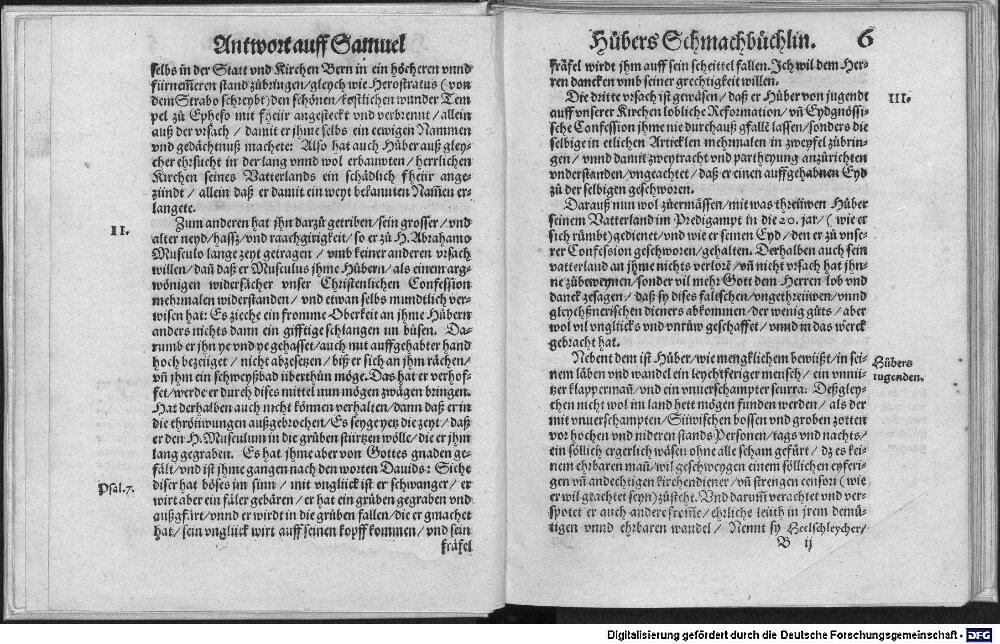 Antwort auff Samuel
selbs in der Statt vnd Kirchen Bern in ein höcheren vnnd
fürnem̃eren stand zübringen/ gleych wie Herostratus (von
dem Strabo schreybt) den schönen/ kostlichen wunder Tem
pel zů Epheso mit fheür angesteckt vnd verbrennt/ allein
auß der vrsach/ damit er jhme selbs ein eewigen Nammen
vnd gedächtnuß machete: Also hat auch Hüber auß gley-
cher ehrsucht in der lang vnnd wol erbauwten/ herrlichen
Kirchen seines Vatterlands ein schädlich fheür ange-
zündt/ allein daß er damit ein weyt bekannten Nam̃en er-
langete.
II.
Zum anderen hat jhn darzů getriben/ sein grosser/ vnd
alter neyd/ hassz/ vnd raachgirigkeit/ so er zů H. Abrahamo
Musculo lange zeyt getragen/ vmb keiner anderen vrsach
willen/ dañ daß er Musculus jhme Hübern/ als einem arg-
wönigen widersächer vnser Christenlichen Confession
mehrmalen widerstanden/ vnd etwan selbs mundtlich ver-
wisen hat: Es zieche ein fromme Oberkeit an jhme Hübern
anders nichts dann ein gifftige schlangen im büsen. Da-
rumb er jhn ye vnd ye gehasset/ auch mit auffgehabter hand
hoch bezeüget/ nicht abzesetzen/ biß er sich an jhm rächen/
vñ jhm ein schweyßbad überthün möge. Das hat er verhof-
fet/ werde er durch dises mittel nun mögen zwägen bringen.
Hat derhalben auch nicht können verhalten/ dann daß er in
die thröüwungen außgebrochen/ Es seye yez die zeyt/ daß
er den H. Musculum in die grüben stürtzen wölle/ die er jhm
lang gegraben. Es hat jhme aber von Gottes gnaden ge-
fält/ vnd ist jhme gangen nach den worten Dauids: Sihe
Psal. 7.
diser hat böses im sinn/ mit vnglück ist er schwanger/ er
wirt aber ein fäler gebären/ er hat ein grüben gegraben vnd
außgfürt/ vnnd er wirdt in die grüben fallen/ die er gmachet
hat/ sein vnglück wirt auff seinen kopff kommen/ vnd sein
fräfel
Hübers Schmachbüchlin. 6
fräfel wirdt jhm auff sein scheittel fallen. Jch wil dem Her-
ren dancken vmb seiner grechtigkeit willen.
III.
Die dritte vrsach ist gewäsen/ daß er Hüber von jugendt
auff vnserer Kirchen lobliche Reformation/ vñ Eydgnössi-
sche Confession jhme nie durchauß gfallẽ lassen/ sonders die
selbige in etlichen Articklen mehrmalen in zweyfel zübrin-
gen/ vnnd damit zweytracht vnd partheyung anzürichten
vnderstanden/ vngeachtet/ daß er einen auffgehabnen Eyd
zů der selbigen geschworen.
Darauß nun wol zůermässen/ mit was threüwen Hüber
seinem Vatterland im Predigampt in die 20. jar/ (wie er
sich rümbt) gedienet/ vnd wie er seinen Eyd/ den er zů vnse-
rer Confession geschworen/ gehalten. Derhalben auch sein
vatterland an jhme nichts verlorẽ/ vñ nicht vrsach hat jhn-
ne zübeweynen/ sonder vil mehr Gott dem Herren lob vnd
danck zesagen/ daß sy dises falschen/ vngethreüwen/ vnnd
gleychßnerischen dieners abkommen/ der wenig güts/ aber
wol vil vnglücks vnd vnrüw geschaffet/ vnnd in das werck
gebracht hat.
Nebent dem ist Hüber/ wie mengklichem bewüßt/ in sei-
Hübers
tugenden.
nem läben vnd wandel ein leychtferiger mensch/ ein vnnü-
tzer klappermañ/ vnd ein vnuerschampter scurra: Deßgley-
chen nicht wol im land hett mögen funden werden/ als der
mit vnuerschampten/ Süwischen bossen vnd groben zotten
vor hochen vnd nideren stands Personen/ tags vnd nachts/
ein söllich ergerlich wäsen ohne alle scham gefürt/ dz es kei-
nem ehrbaren mañ/ wil geschweygen einem söllichen eyferi-
gen vñ andechtigen kirchendiener/ vñ strengen censori (wie
er wil geachtet seyn) züsteht. Vnd darum̃ verachtet vnd ver-
spotet er auch andere from̃e/ ehrliche leüth in jrem demü-
tigen vnnd ehrbaren wandel/ Nennt sy Heelschleycher/
B ij
Digitalisierung gefördert durch die Deutsche Forschungsgemeinschaft - DFG